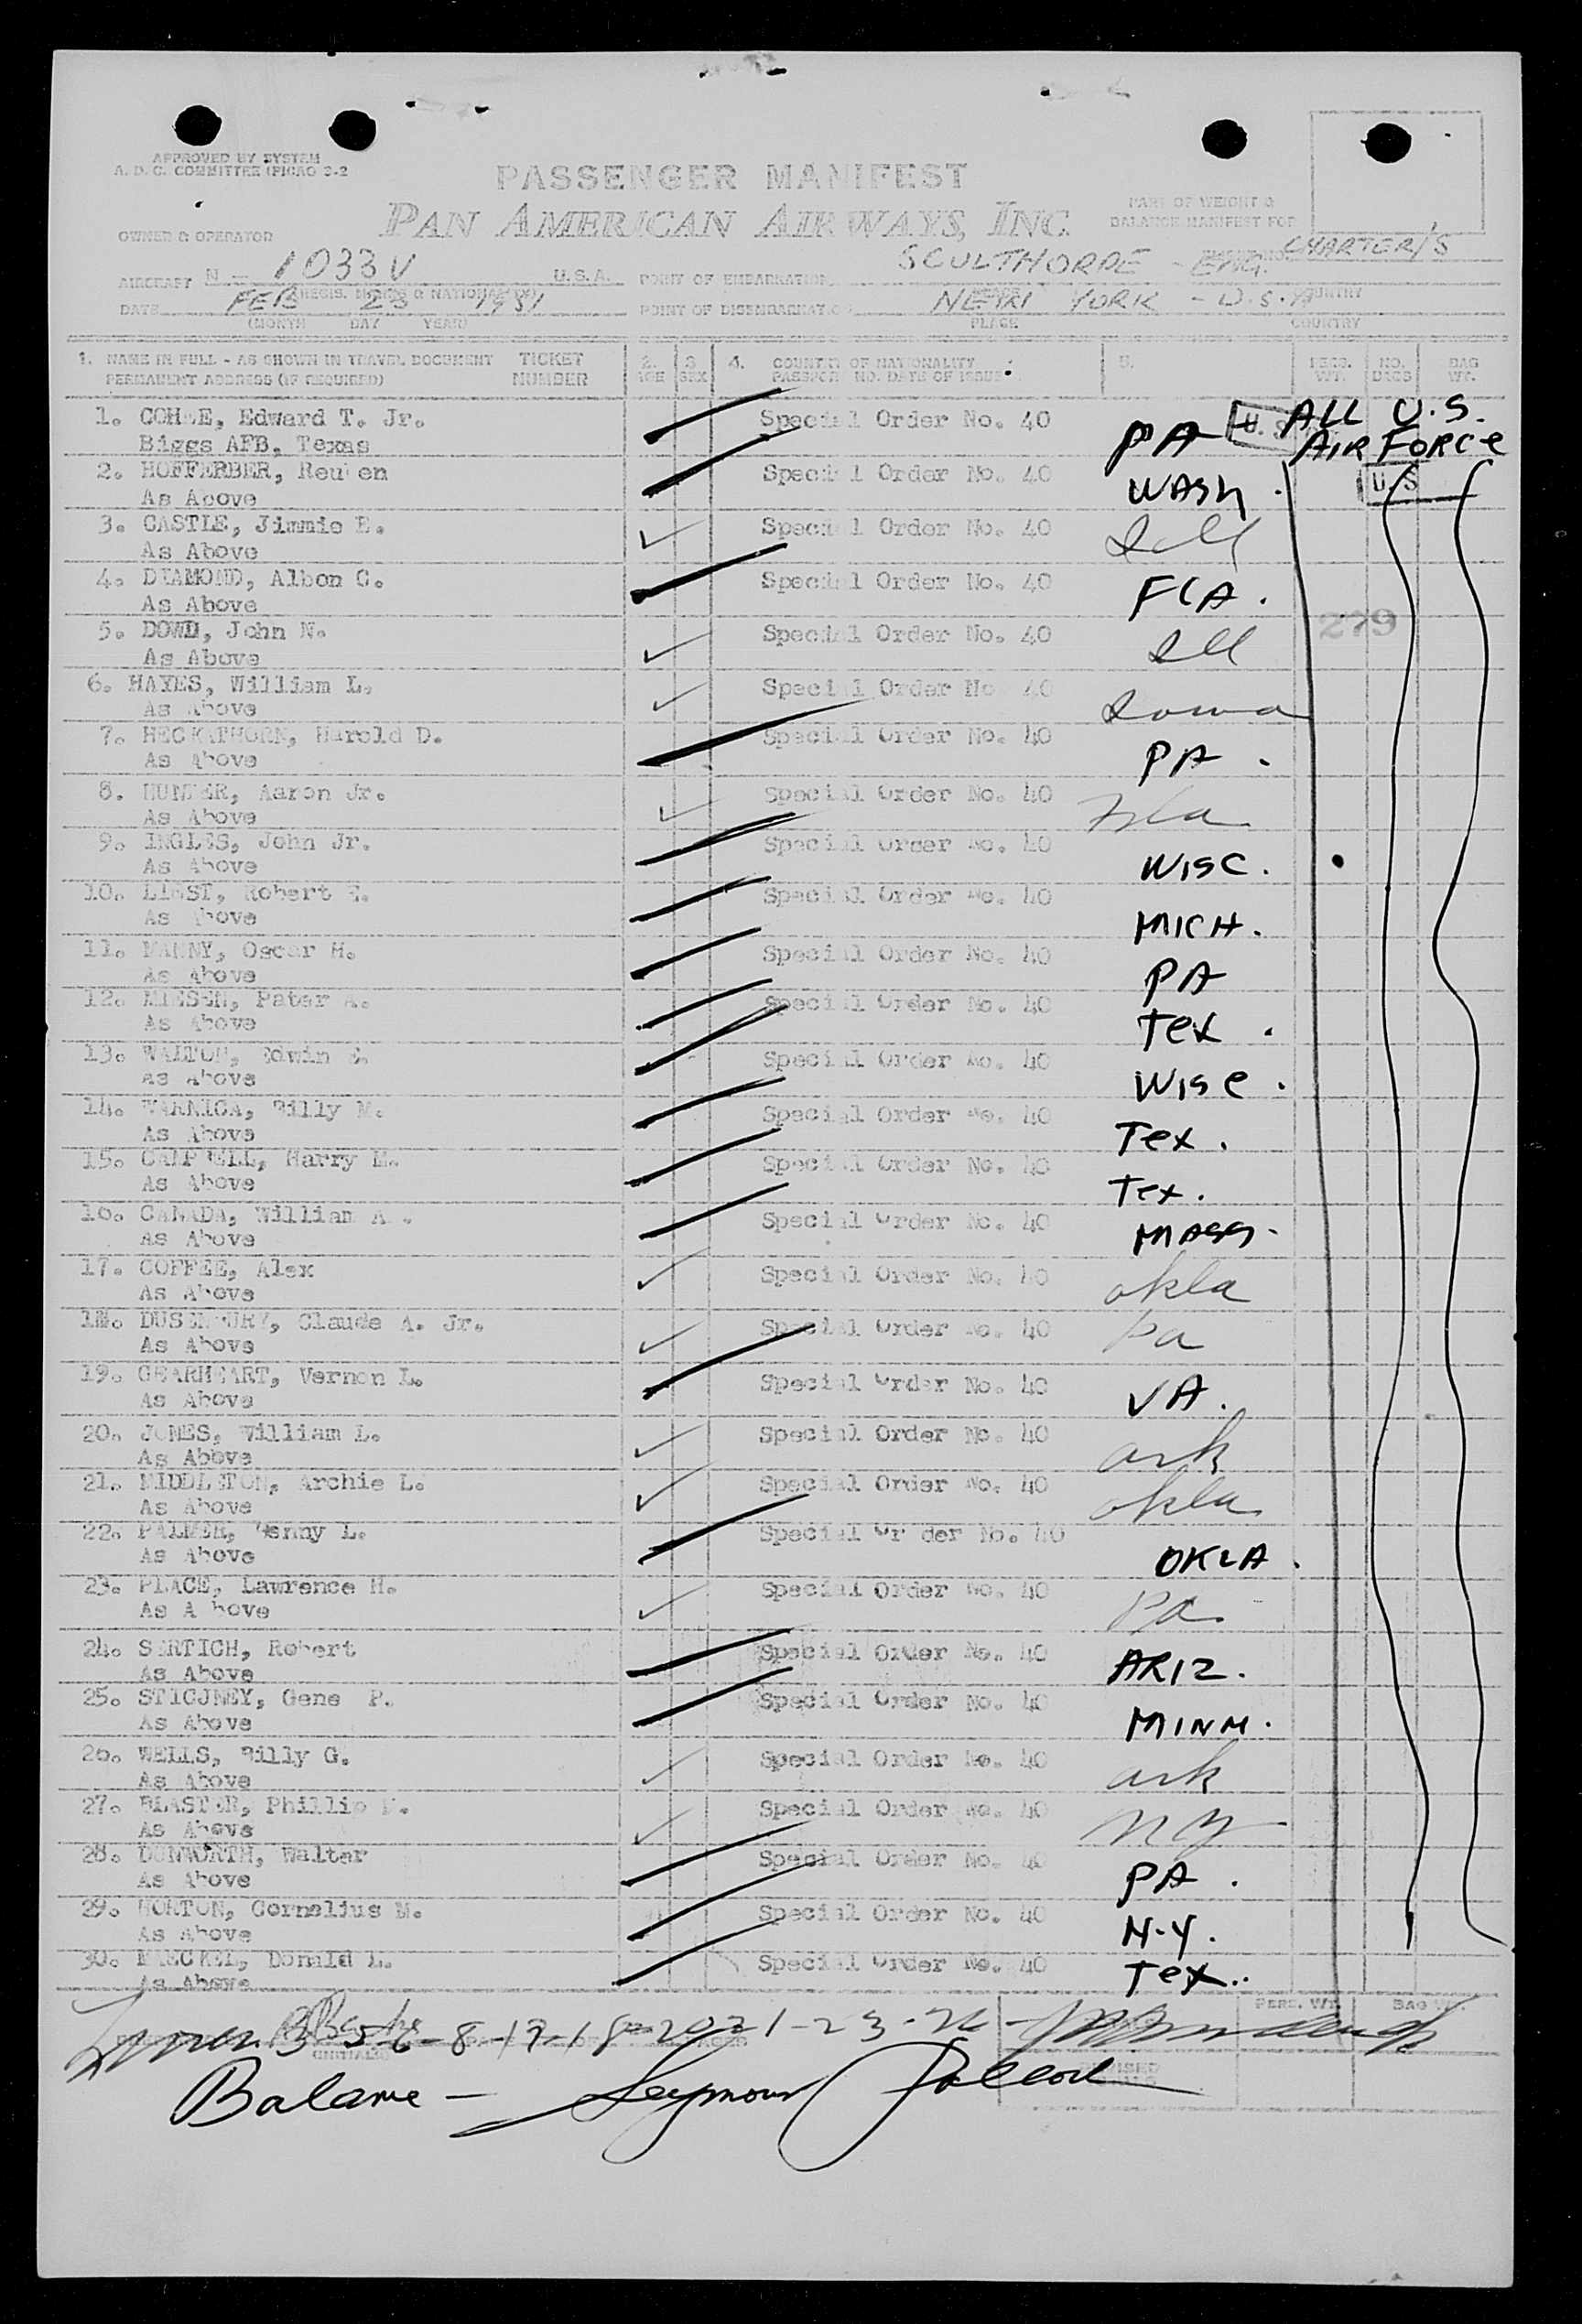 APPROVED BY SYSTEM
A. D. C. COMMITTEE (PICAO 3-2
PASSENGER MANIFEST
PAN AMERICAN AIRWAYS, INC.
PART OF WEIGHT &
BALANCE MANIFEST FOR
OWNER & OPERATOR
CHARTER/S
AIRCRAFT N - 1033V U.S.A. POINT OF EMBARKATION SCULTHORPE - ENG.
DATE FEB 23 1951 POINT OF DISEMBARKATION NEW YORK - U.S.A
(MONTH DAY YEAR) PLACE COUNTRY
1. NAME IN FULL - AS SHOWN IN TRAVEL DOCUMENT TICKET 2. 3 4. COUNTRY OF NATIONALITY 5. PERS. NO. BAG
PERMANENT ADDRESS (IF REQUIRED) NUMBER AGE SEX PASSPORT NO. DATE OF ISSUE WT. PKGS WT.
1. Edward T. Jr. Special Order No. 40 PA U.S. ALL U.S.
Biggs AFB, Texas AIR FORCE
2. HOFFERBER, Reuben Special Order No. 40 WASH. U.S
As Above
3. CASTLE, Jimmie E. Special Order No. 40 Ill
As Above
4. DIAMOND, Albon C. Special Order No. 40 FLA.
As Above
5. DOWD, John N. Special Order No. 40 Ill 279
As Above
6. HAYES, William L. Special Order No 40 Iowa
As Above
7. HECKATHORN, Harold D. Special Order No. 40 PA.
As Above
8. HUNTER, Aaron Jr. Special Order No. 40 Fla
As Above
9. INGLES, John Jr. Special Order No. 40 WISC.
As Above
10. Robert E. Special Order No. 40 MICH.
As Above
11. MANNY, Oscar H. Special Order No. 40 PA
As Above
12. MIESEN, Peter A. Special Order No. 40 Tex.
As Above
13. WALTON, Edwin Special Order No. 40 WISC.
As Above
14. WARNICA, Billy M. Special Order No. 40 Tex.
As Above
15. CAMPBELL, Harry M. Special Order No. 40 Tex.
As Above
16. CANADA, William A. Special Order No. 40 MASS.
As Above
17. COFFEE, Alex Special Order No. 40 okla
As Above
18. DUSENBURY, Claude A. Jr. Special Order No. 40 Pa
As Above
19. GEARHEART, Vernon L. Special Order No. 40 VA.
As Above
20. JONES, William L. Special Order No. 40 ark
As Above
21. MIDDLETON, Archie L. Special Order No. 40 okla
As Above
22. PALMER, L. Special Or der No. 40 OKLA.
As Above
23. PLACE, Lawrence H. Special Order No. 40 Pa
As A bove
24. SERTICH, Robert Special Order No. 40 ARIZ.
As Above
25. STICJNEY, Gene P. Special Order No. 40 MINN.
As Above
26. WELLS, Billy G. Special Order No. 40 ark
As Above
27. BLASTER, Phillip Special Order No. 40 NY
As Above
28. DUNWORTH, Walter Special Order No. 40 PA.
As Above
29. HORTON, Cornelius M. Special Order No. 40 N.Y.
As Above
30. Donald L. Special Order No. 40 Tex..
As Above
PERS. WT. BAG WT.
3-5-6-8-17-18-20-21-23-26-
Balance - Seymour